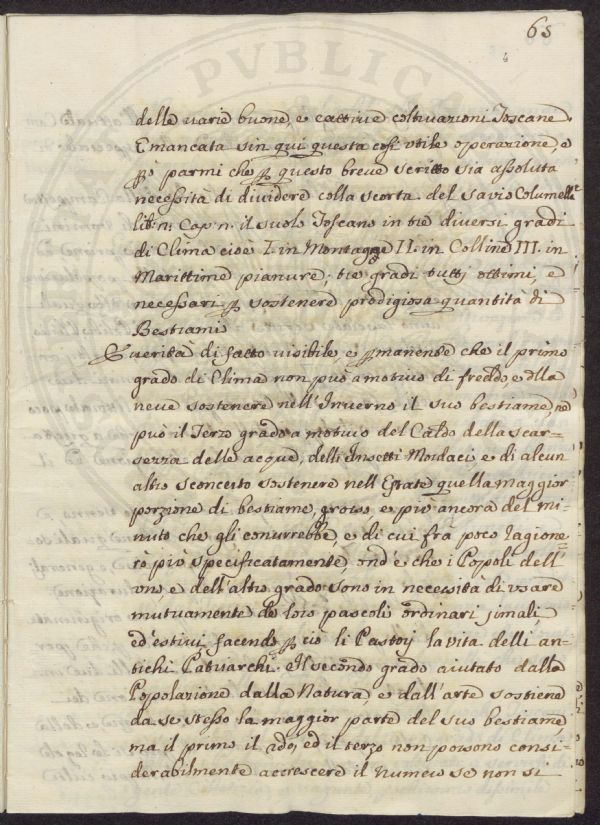 65
delle varie buone, e cattive coltivazioni Toscane.
È mancata sin qui questa così utile operazione, e
pò parmi che p questo breve scritto sia assoluta
necessità di dividere colla scorta del savio Columella
lib: n: Cap: n. il suolo Toscano in trè diversi gradi
di Clima cioè I. in Montagne II. in Colline III. in
Marittime pianure; tre gradi tutti ottimi e
necessari p sostenere prodigiosa quantità di
Bestiami
È verità di fatto visibile, e pmanente che il primo
grado di Clima non può a motivo di freddo, e dlla
neve sostenere nell'Inverno il suo bestiame, nè
può il Terzo grado a motivo del Caldo della scar-
sezza delle acque, delli Insetti Mordaci e di alcun
altro sconcerto sostenere nell'Estate quella maggior
porzione di bestiame, grosso e più ancora del mi-
nuto che gli converrebbe, e di cui frà poco ragione-
rò più specificatamente, ond'è che i Popoli dell'
uno, e dell'altro grado sono in necessità di usare
mutuamente de loro pascoli ordinari jmali,
ed estivi facendo p ciò li Pastori la vita delli an-
tichi Patriarchi. Il secondo grado aiutato dalla
Popolazione dalla Natura, e dall'arte sostiene
da se stesso la maggior parte del suo bestiame,
ma il primo il 2do, ed il terzo non possono consi-
derabilmente accrescere il numero se non si